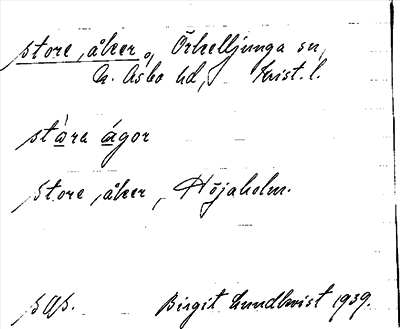 store åker, Örkelljunga sn,
N. Åsbo hd, Krist. l.
stàra ágor
store åker, Höjaholm.
s 9/5. Birgit Lundkvist 1939.